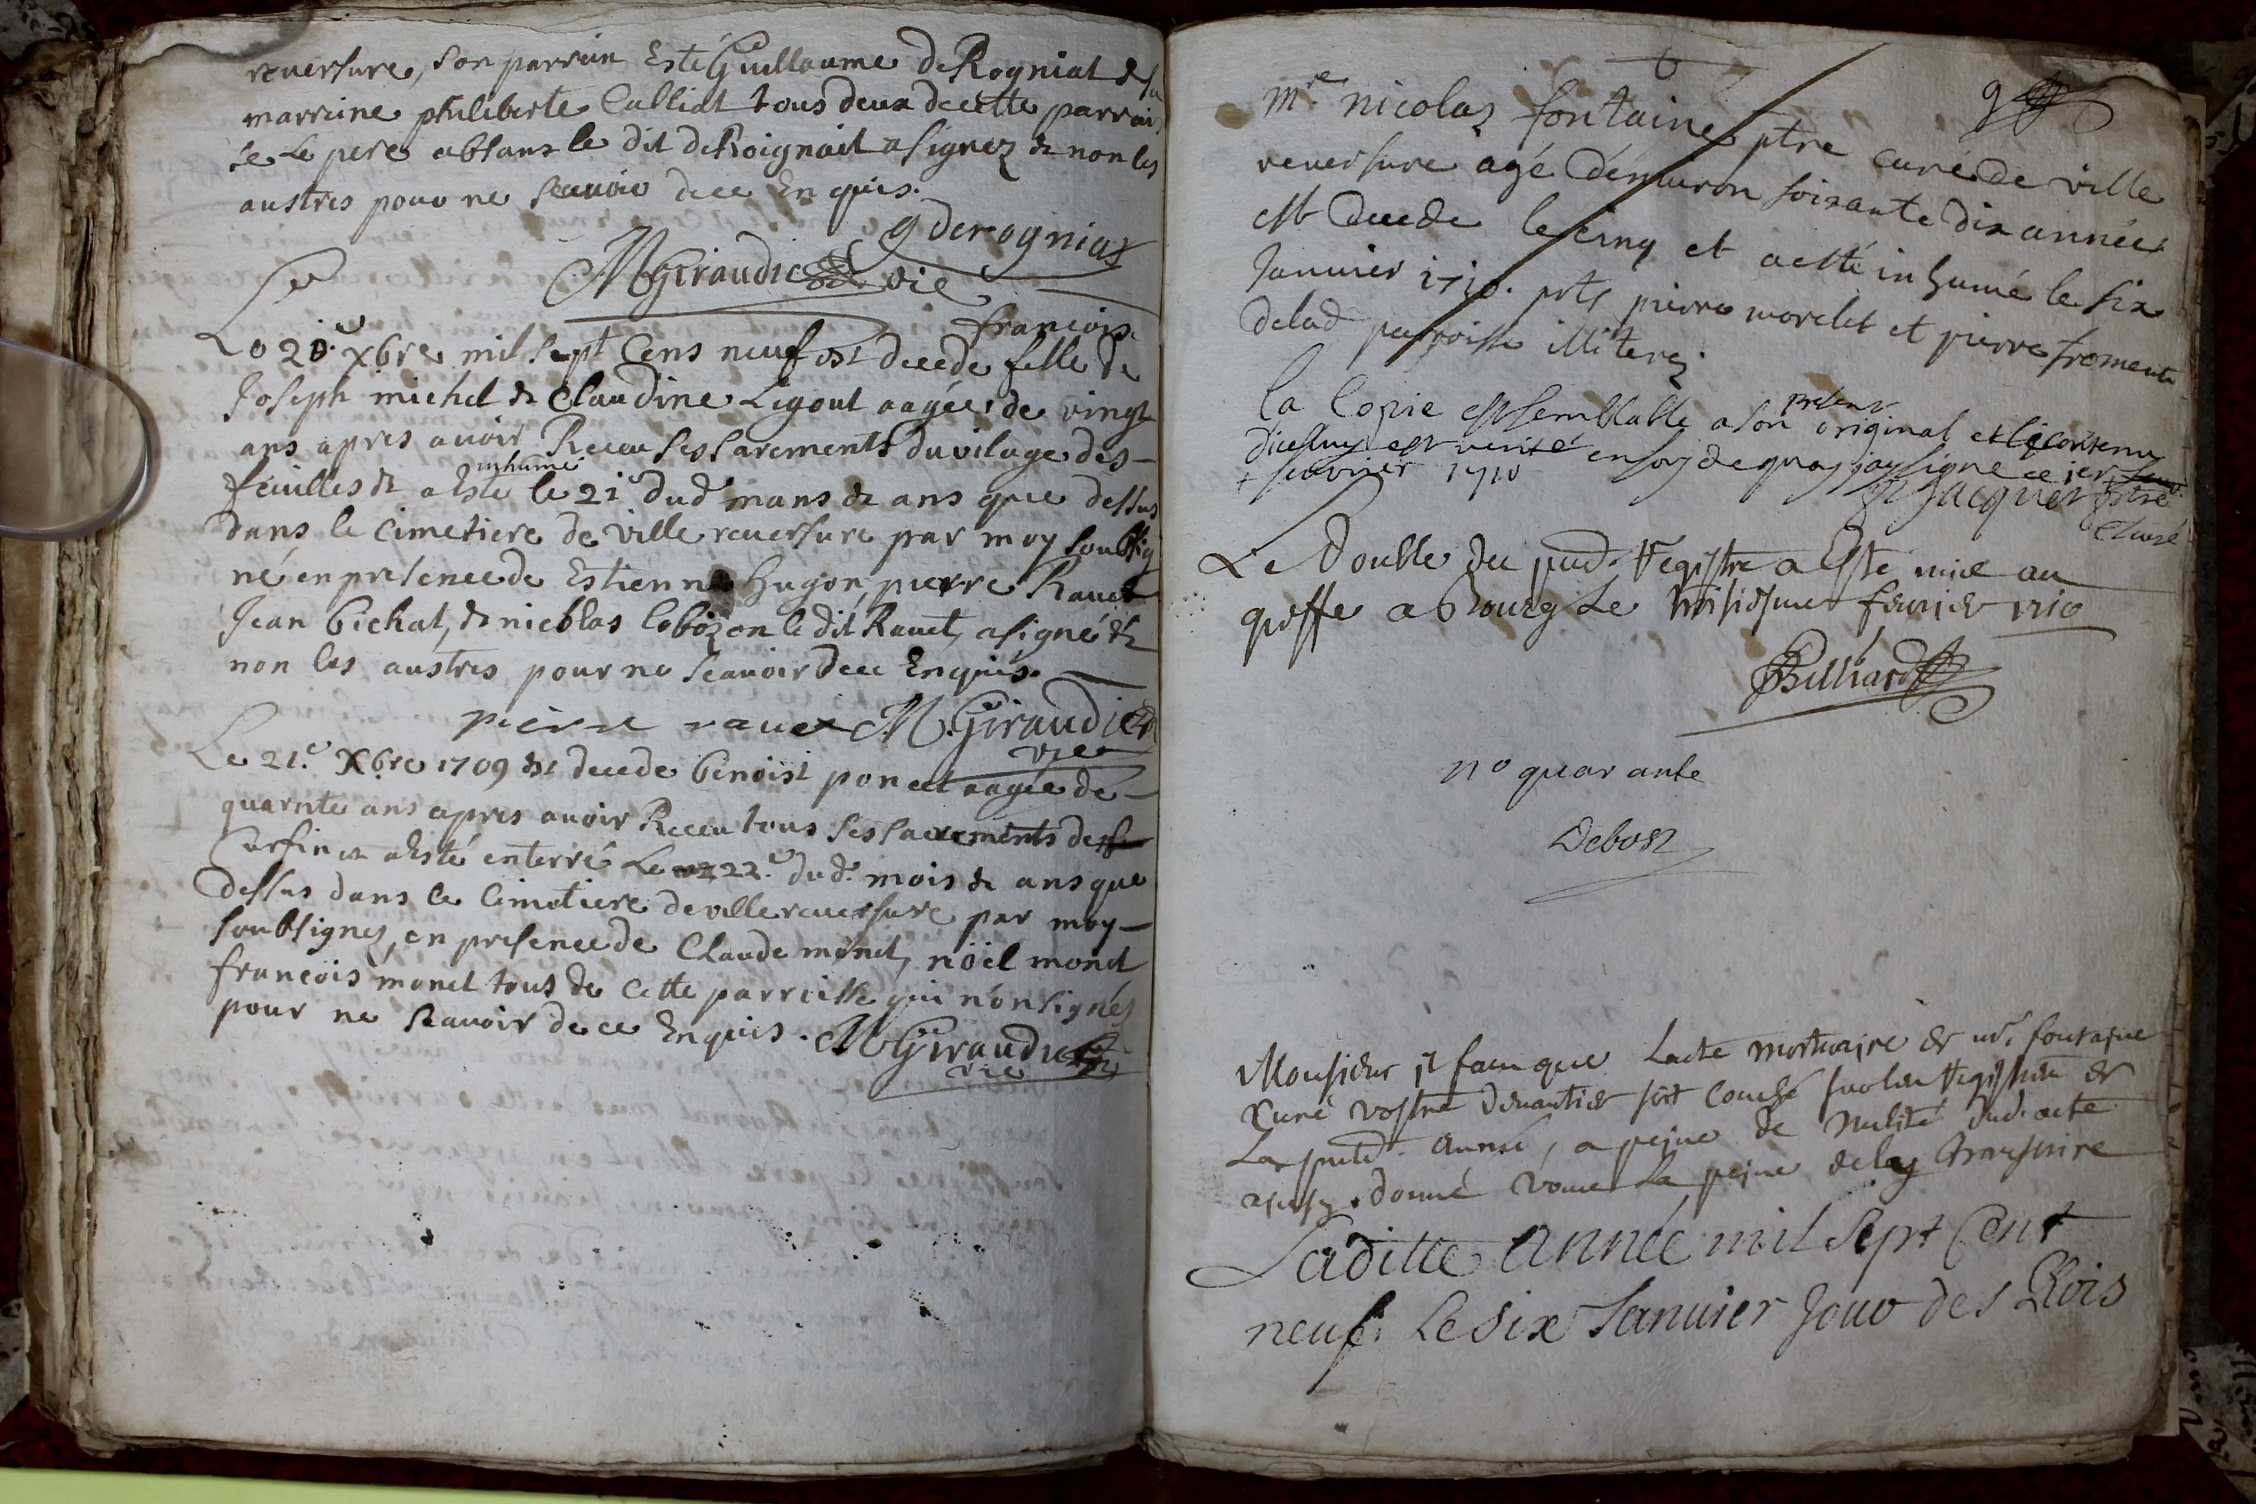 reuersure, son parrein Esté Guillaume DeRogniat & sa
marreine philiberte Calliat tous deux de cette parrois
se Le pere absans le dit DeRoignait a signez & non les
austres pour ne Scauoir de ce Enquis.
g derogniat
MGiraudier vic
francois
Le 20.e Xbre mil sept Cens neuf est decede fille de
Joseph michel & Claudine Ligout aagée de vingt
ans apres auoir Receu ses sacrements du vilage des
feuilles & a Esté inhumé le 21e dud mans & ans que dessus
dans le cimetiere de ville reuersure par moy soubsig
né en presence de Estienne Hugon, pierre Rauet
Jean bichat, & nicolas lobozon le dit Rauet, a signé &
non les austres pour ne Scauoir de ce Enquis.
pierre rauet M.Giraudier
vic
Le 21.e Xbre 1709 est decede benoist poncet aagée de
quarnte ans apres auoir Receu tous ses sacrements de
Curfin & a Esté enterré Le 22.e dud. mois & ans que
dessus dans le Cimetiere de ville reuersure par moy
soubsignez, en presence de Claude monet, nöel monet
francois monet tous de cette parroisse qui n'on signés
pour ne Scauoir de ce Enquis. MGiraudier
vic
9
mre nicolas fontaine ptre curé de ville
reuersure agé d'enuiron soixante dix années
est decede le cinq et a esté inhumé le six
Januier 1710. pnts pierre morelet et pierre froment
delad parroisse illiterez.
la Copie est semblable a son present original et le contenu
dicelluy est verité en foy de quoy jay signé ce 1er
+ feburier 1710
Jacquier ptre
Curé
Le Double du pnd. Registre a Esté mis au
greffe a Bourg Le troisiesme feurier 1710
Billiard
no quarante
Debost
Monsieur il faut que Lacte mortuaire de mr. fontaine
Curé vostre deuantier soit couché sur les registres de
La pnte. Année, a peine de nulité dud. acte
donné vous La peine de la transcrire
Laditte Année mil Sept Cent
neuf. Le Six Januier Jour des Rois